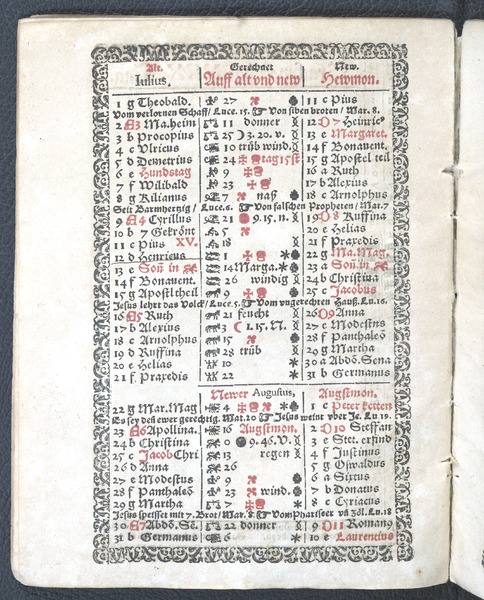 Alt. Gerechnet New.
Iulius. Auff alt vnd new Hewmon.
1 g Theobald. 27 11 c Pius
Vom verlornen Schaff/ Luce. 15. Von siben broten / Mar. 8.
2 3 Ma. heim 11 donner 12 D 7 Heinric
3 b Procopius 25 3. 20. v. 13 e Margaret.
4 c Vlricus 10 trüb wind. 14 f Bonauent.
5 d Demetrius 24 tag 15 st 15 g Apostel teil
6 e Hundstag 9 16 a Ruth
7 f Wilibald 23 17 b Alexius
8 g Kilianus 7 naß 18 c Arnolphus
Seit Barmhertzig / Luce. 6. Von falschen Propheten / Mat. 7
9 4 Cyrillus 21 9. 15. n. 19 D 8 Ruffina
10 b 7 Gekrönt 5 20 e Helias
11 c Pius XV. 18 21 f Praxedis
12 d Henricus 1 22 g Ma. Mag.
13 e Soñ in 14 Marga. 23 a Soñ in
14 f Bonauent. 26 windig 24 b Christina
15 g Apostl theil 9 25 c Jacobus
Jesus lehrt das Volck / Luce. 5. Vom vngerechten Haußh. Lu. 16.
16 5 Ruth 21 feucht 26 D 9 Anna
17 b Alexius 3 1. 15. N. 27 e Modestus
18 c Arnolphus 15 28 f Panthaleõ
19 d Ruffina 28 trüb 29 g Martha
20 e Helias 10 30 a Abdõ. Sena
21 f Praxedis 22 31 b Germanus
Newer Augustus, Augstmon.
22 g Mar. Mag 4 1 c Peter ketten
Es sey deñ ewer gerechtig. Mat. 20 Jesus weint vber Je. Lu 19.
23 6 Apollina. 16 Augstmon. 2 D 10 Steffan
24 b Christina 0 9. 46. V. 3 e Stet. erfind
25 c Jacob Chri 13 regen 4 f Justinus
26 d Anna 26 5 g Oswaldus
27 e Modestus 9 6 a Sixtus
28 f Panthaleõ 23 wind. 7 b Donatus
29 g Martha 7 8 c Cyriacus
Jesus speisset mit 7. Brot / Mar. 8. Vom Phariseer vñ Zöl. Lu. 18
30 7 Abdõ. Sẽ. 22 donner 9 D 11 Romang
31 b Germanus 6 10 e Laurentius